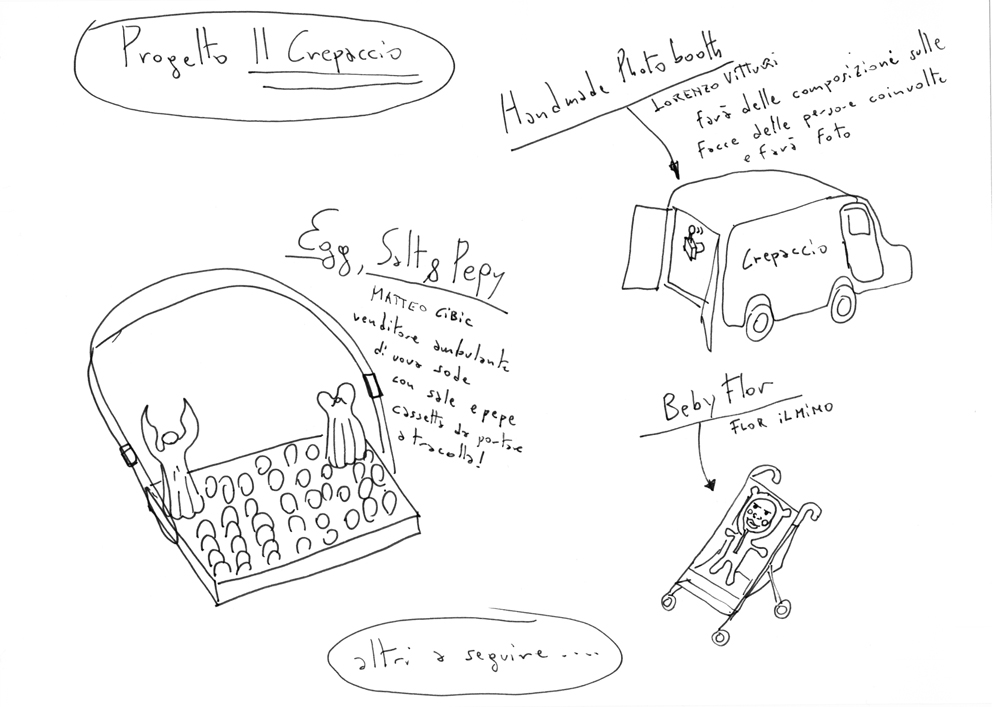 Progetto Il Crepaccio
Handmade Photobooth
LORENZO VITTURI
farà delle composizioni sulle
facce delle persone coinvolte
e farà foto
Crepaccio
Egg, Salt & Pepy
MATTEO CIBIC
venditore ambulante
di uova sode
con sale e pepe
cassetta da portare
a tracolla!
Beby Flor
FLOR iL MIMO
altri a seguire....